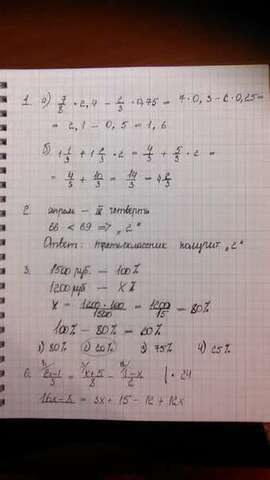 1. а) 7/8 · 2,4 − 2/3 · 0,75 = 7 · 0,3 − 2 · 0,25 =
= 2,1 − 0,5 = 1,6
б) 1 1/3 + 1 2/3 · 2 = 4/3 + 5/3 · 2 =
= 4/3 + 10/3 = 14/3 = 4 2/3
2. апрель − III четверть
68 < 69 => „2“
Ответ: третьеклассник получит „2“
3. 1500 руб. − 100%
1200 руб − X%
X = 1200·100/1500 = 1200/15 = 80%
100% − 80% = 20%
1) 80% 2) 20% 3) 75% 4) 25%
6. 2x−1/3 = x+5/8 − 1−x/2 | · 24
16x − 8 = 3x + 15 − 12 + 12x